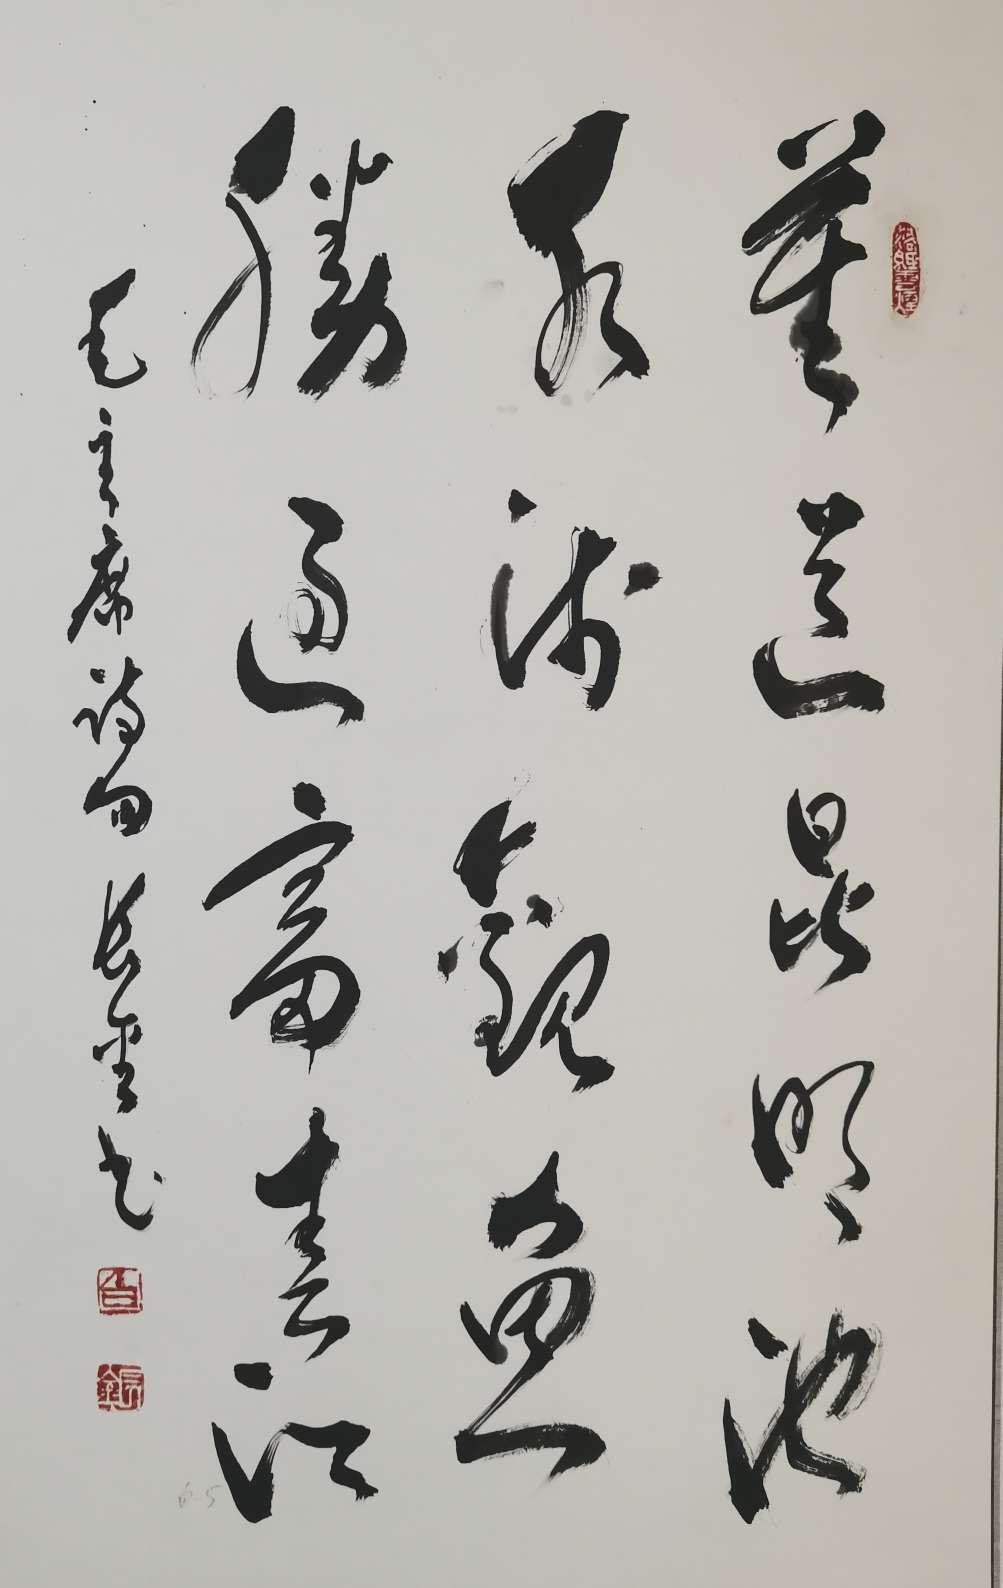 莫道昆明池
水浅观鱼
胜过富春江
毛主席诗句 长金书